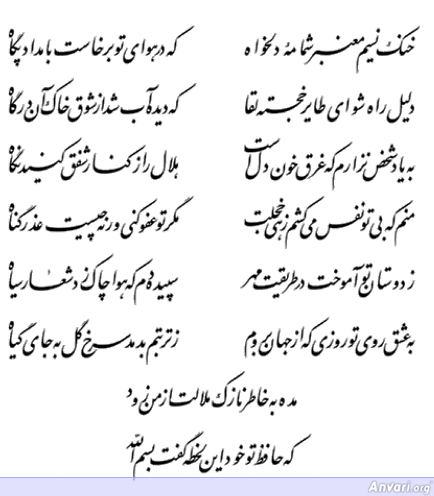 خنک نسیم معنبر شمامهٔ دلخواه که در هوای تو برخاست بامداد پگاه
دلیل راه شو ای طایر خجسته لقا که دیده آب شد از شوق خاک آن درگاه
به یاد شخص نزارم که غرق خون دل است هلال را ز کنار شفق کنید نگاه
منم که بی تو نفس می‌کشم زهی خجلت مگر تو عفو کنی ور نه چیست عذر گناه
ز دوستان تو آموخت در طریقت مهر سپیده دم که هوا چاک زد شعار سیاه
به عشق روی تو روزی که از جهان بروم ز تربتم بدمد سرخ گل به جای گیاه
مده به خاطر نازک ملالت از من زود
که حافظ تو خود این لحظه گفت بسم الله
Anvari.org